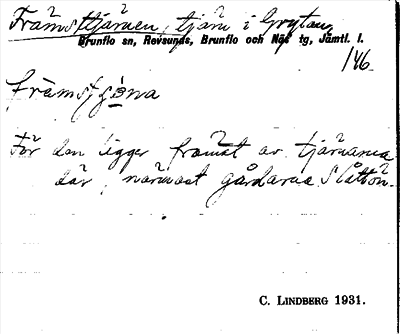 Främsttjärnen, tjärn i Grytan,
Brunflo sn, Revsunds, Brunflo och Näs tg, Jämtl. l.
146.
främstjǝna
För den ligger främst av tjärnarna
där, närmast gårdarna Slåttön.
C. LINDBERG 1931.